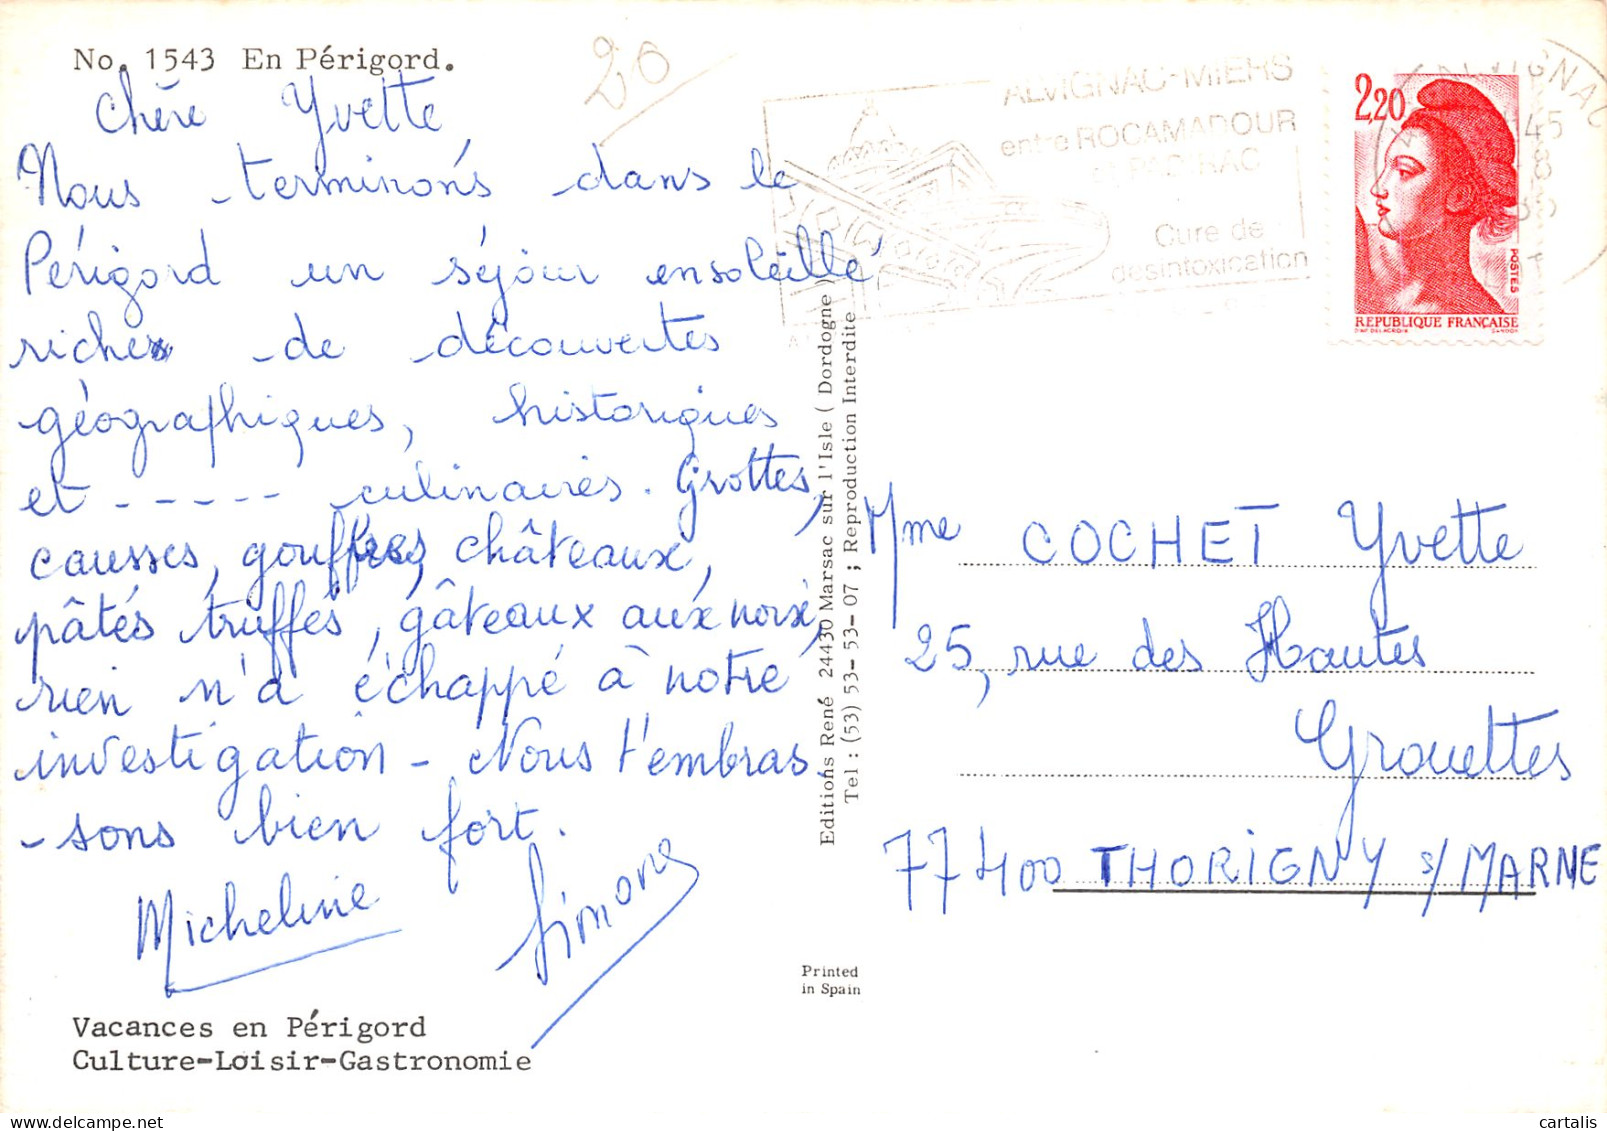 No. 1543 En Périgord.
20
Chère Yvette
Nous terminons dans le
Périgord un séjour ensoleillé
riche de découvertes
géographiques, historiques
et ----- culinaires. Grottes,
causses, gouffres, châteaux,
pâtés truffés, gâteaux aux noix,
rien n'a échappé à notre
investigation - Nous t'embras
-sons bien fort.
Micheline
Simone
Vacances en Périgord
Culture-Loisir-Gastronomie
Editions René 24430 Marsac sur l'Isle ( Dordogne )
Tel : (53) 53-53-07 ; Reproduction Interdite
Printed
in Spain
ALVIGNAC-MIERS
entre ROCAMADOUR
et PADIRAC
Cure de
desintoxication
ALVIGNAC
45
2,20
POSTES
REPUBLIQUE FRANÇAISE
D'AP. DELACROIX GANDON
Mme COCHET Yvette
25, rue des Hautes
Grouettes
77400 THORIGNY s/ MARNE
cartalis